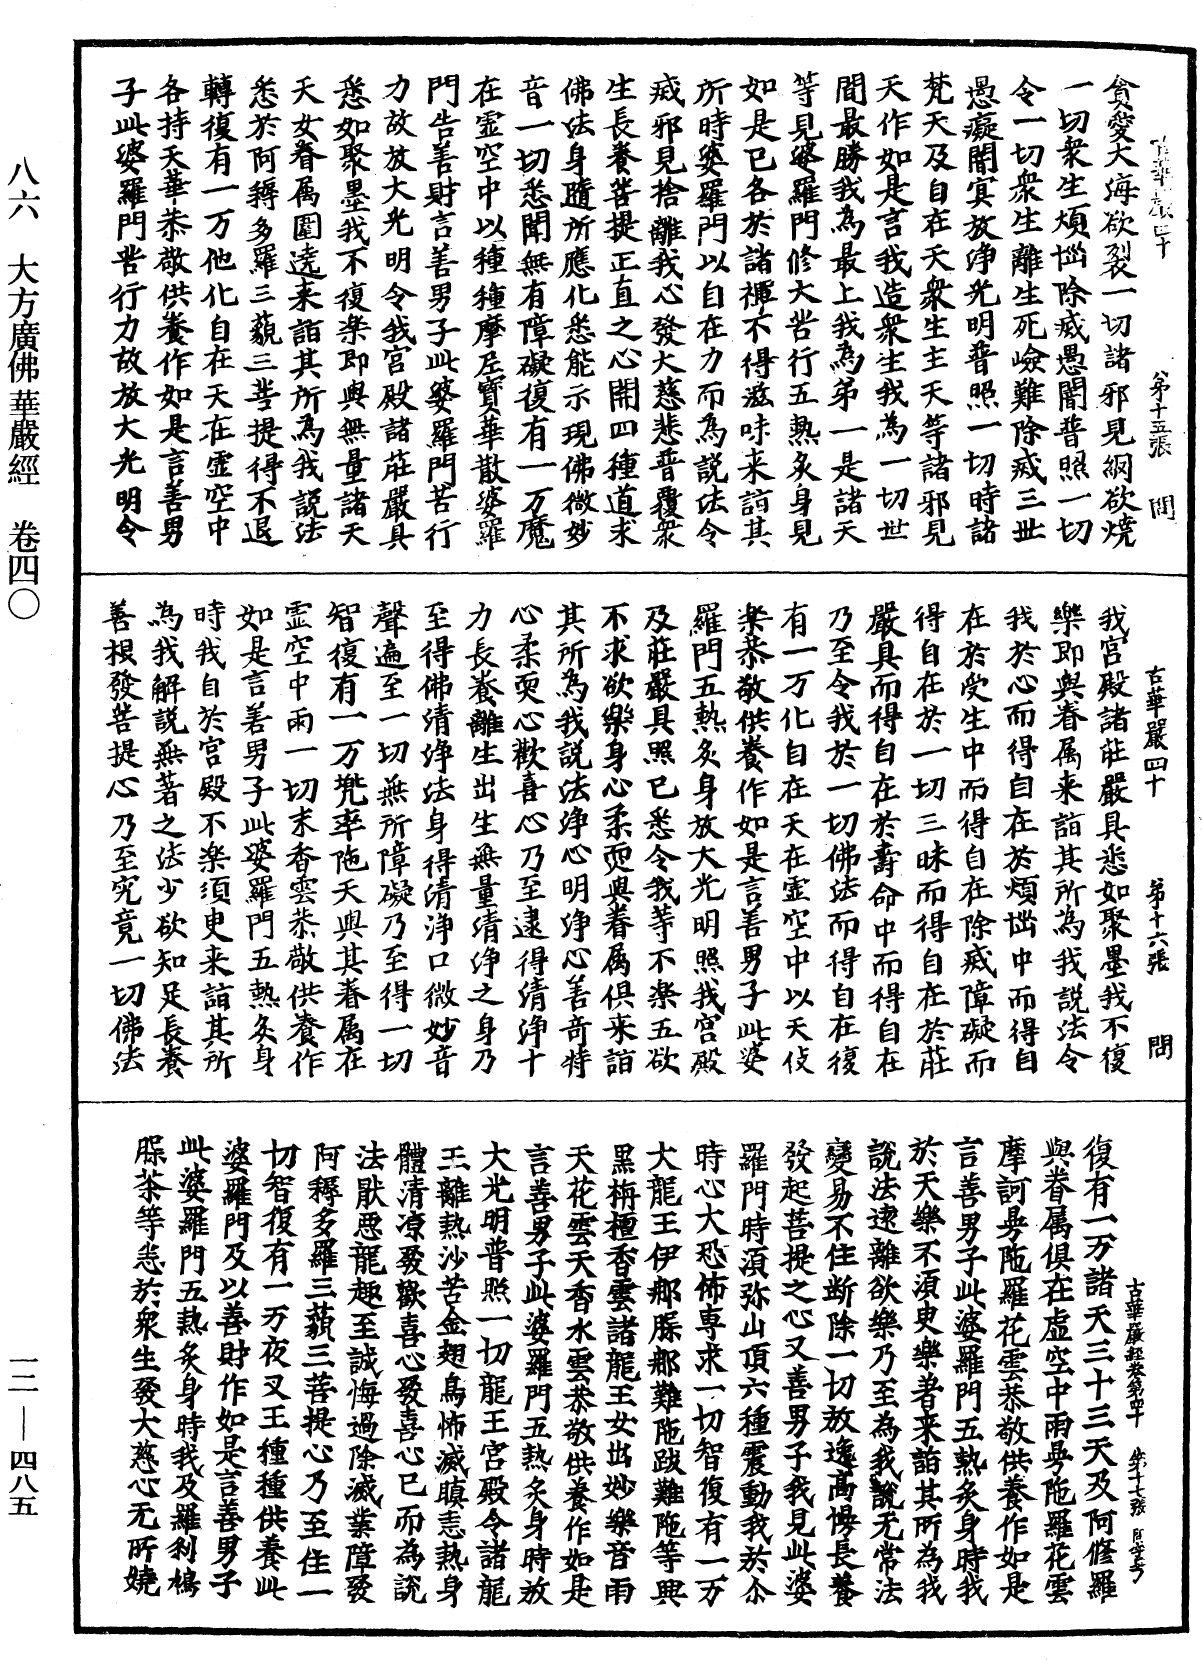 貪愛大海欲裂一切諸邪見網欲燒
一切衆生煩惱除滅愚闇普照一切
令一切衆生離生死嶮難除滅三世
愚癡闇冥放淨光明普照一切時諸
梵天及自在天衆生主天等諸邪見
天作如是言我造衆生我為一切世
間最勝我為最上我為第一是諸天
等見婆羅門修大苦行五熱炙身見
如是已各於諸禪不得滋味来詣其
所時婆羅門以自在力而為說法令
滅邪見捨離我心發大慈悲普覆衆
生長養菩提正直之心開四種道求
佛法身隨所應化悉能示現佛微妙
音一切悉聞無有障礙復有一万魔
在虛空中以種種摩尼寶華散婆羅
門告善財言善男子此婆羅門苦行
力故放大光明令我宮殿諸莊嚴具
悉如聚墨我不復樂即與無量諸天
天女眷属圍遶来詣其所為我說法
悉於阿耨多羅三藐三菩提得不退
轉復有一万他化自在天在虛空中
各持天華恭敬供養作如是言善男
子此婆羅門苦行力故放大光明令
第十五張
問
古華嚴四十
第十六張
問
我宮殿諸莊嚴具悉如聚墨我不復
樂即與眷属来詣其所為我說法令
我於心而得自在於煩惱中而得自
在於受生中而得自在除滅障礙而
得自在於一切三昧而得自在於莊
嚴具而得自在於壽命中而得自在
乃至令我於一切佛法而得自在復
有一万化自在天在虛空中以天伎
樂恭敬供養作如是言善男子此婆
羅門五熱炙身放大光明照我宮殿
及莊嚴具照已悉令我等不樂五欲
不求欲樂身心柔耎與眷属俱来詣
其所為我說法淨心明淨心善奇特
心柔耎心歡喜心乃至逮得清淨十
力長養離生出生無量清淨之身乃
至得佛清淨法身得清淨口微妙音
聲遍至一切無所障礙乃至得一切
智復有一万兜率陁天與其眷属在
虛空中雨一切末香雲恭敬供養作
如是言善男子此婆羅門五熱炙身
時我自於宮殿不樂須臾来詣其所
為我解説無著之法少欲知足長養
善根發菩提心乃至究竟一切佛法
古華嚴經卷第四十
第十七張
復有一万諸天三十三天及阿修羅
與眷属俱在虛空中雨曼陁羅花雲
摩訶曼陁羅花雲恭敬供養作如是
言善男子此婆羅門五熱炙身時我
於天樂不須臾樂著来詣其所為我
說法逮離欲樂乃至為我說无常法
變易不住断除一切放逸高慢長養
發起菩提之心又善男子我見此婆
羅門時須弥山頂六種震動我於尒
時心大恐怖専求一切智復有一万
大龍王伊那䐗那難陁跋難陁等興
黑栴檀香雲諸龍王女出妙樂音雨
天花雲天香水雲恭敬供養作如是
言善男子此婆羅門五熱炙身時放
大光明普照一切龍王宮殿令諸龍
王離熱沙苦金翅鳥怖滅瞋恚熱身
體清凉發歡喜心發喜心已而為說
法猒惡龍趣至誠悔過除滅業障發
阿耨多羅三藐三菩提心乃至住一
切智復有一万夜叉王種種供養此
婆羅門及以善財作如是言善男子
此婆羅門五熱炙身時我及羅刹鳩
槃茶等悉於衆生發大慈心无所嬈
八六　大方廣佛華嚴經　卷四〇
一二—四八五